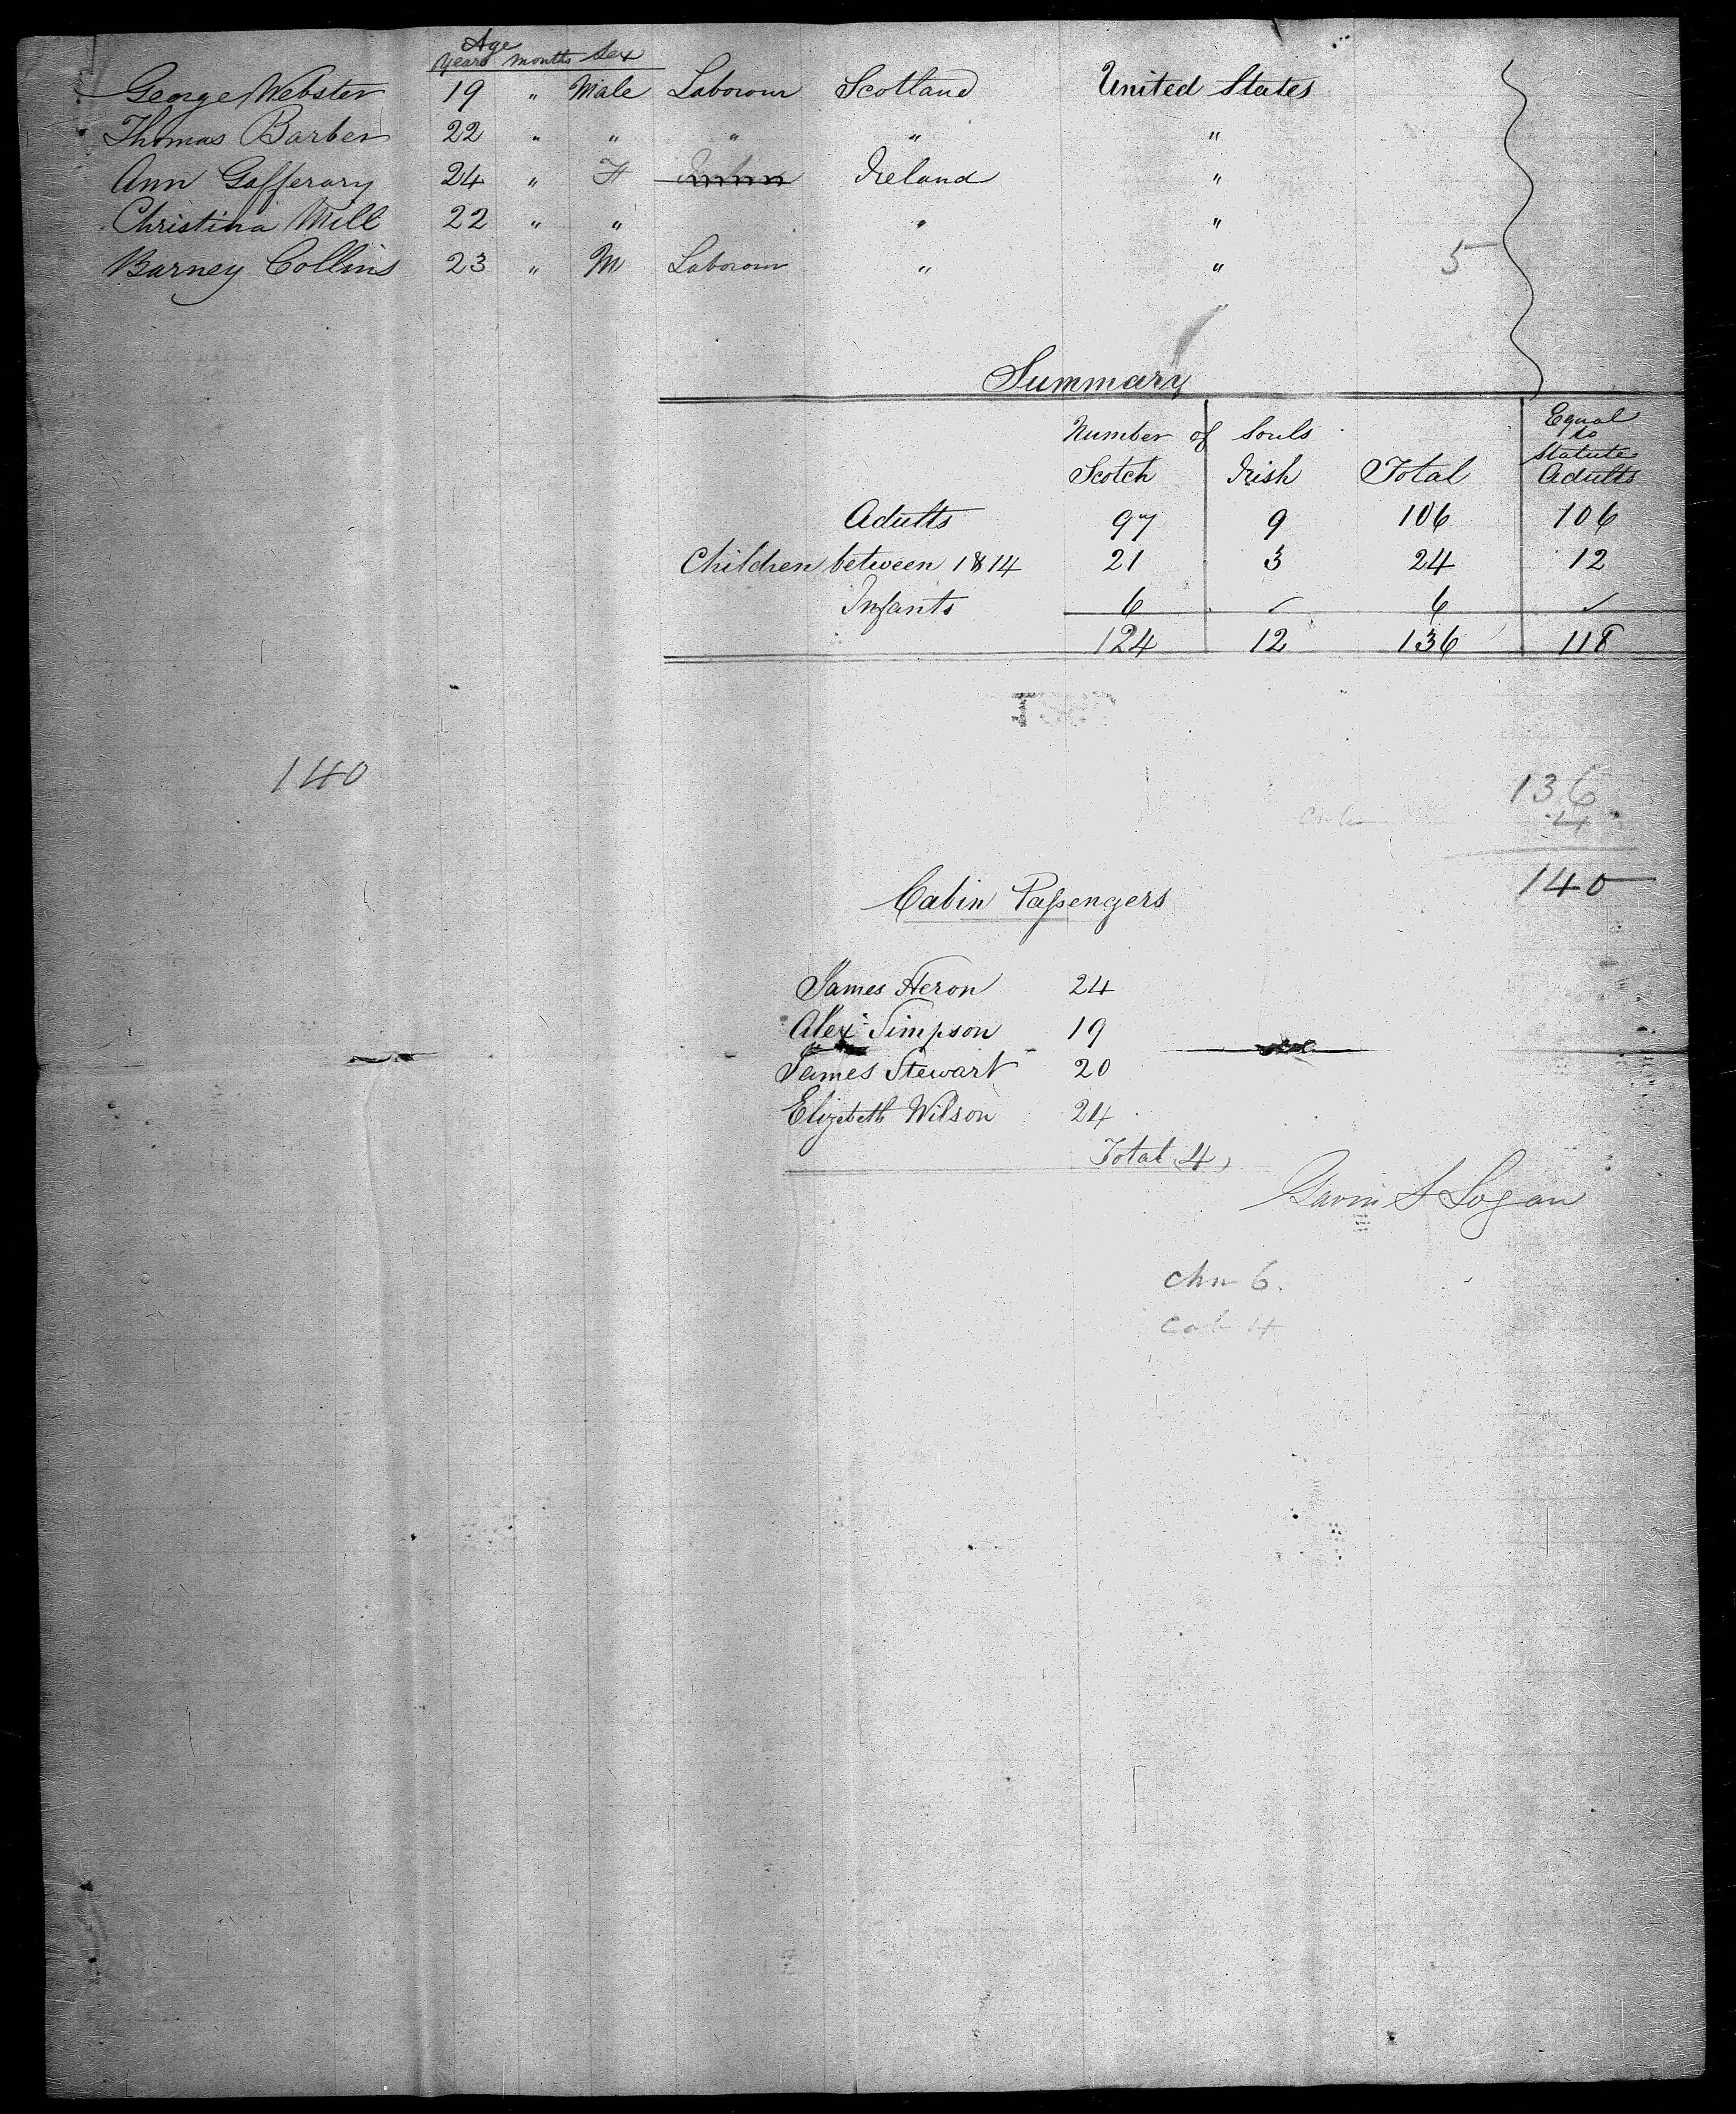 Age
Years Months Sex
George Webster 19 " Male Laborour Scotland United States
Thomas Barber 22 " " " " "
Ann Gafferary 24 " F Ireland "
Christina Mill 22 " " " "
Barney Collins 23 " M Laborour " " 5
Summary
Number of Souls Equal to Statute Adults
Scotch Irish Total
Adults 97 9 106 106
Children between 1 & 14 21 3 24 12
Infants 6 ✓ 6 ✓
124 12 136 118
140
136
4
140
Cabin Paſsengers
James Heron 24
Alexr Simpson 19
James Stewart 20
Elizebeth Wilson 24
Total 4
Gavin S Logan
chn 6
cab 4